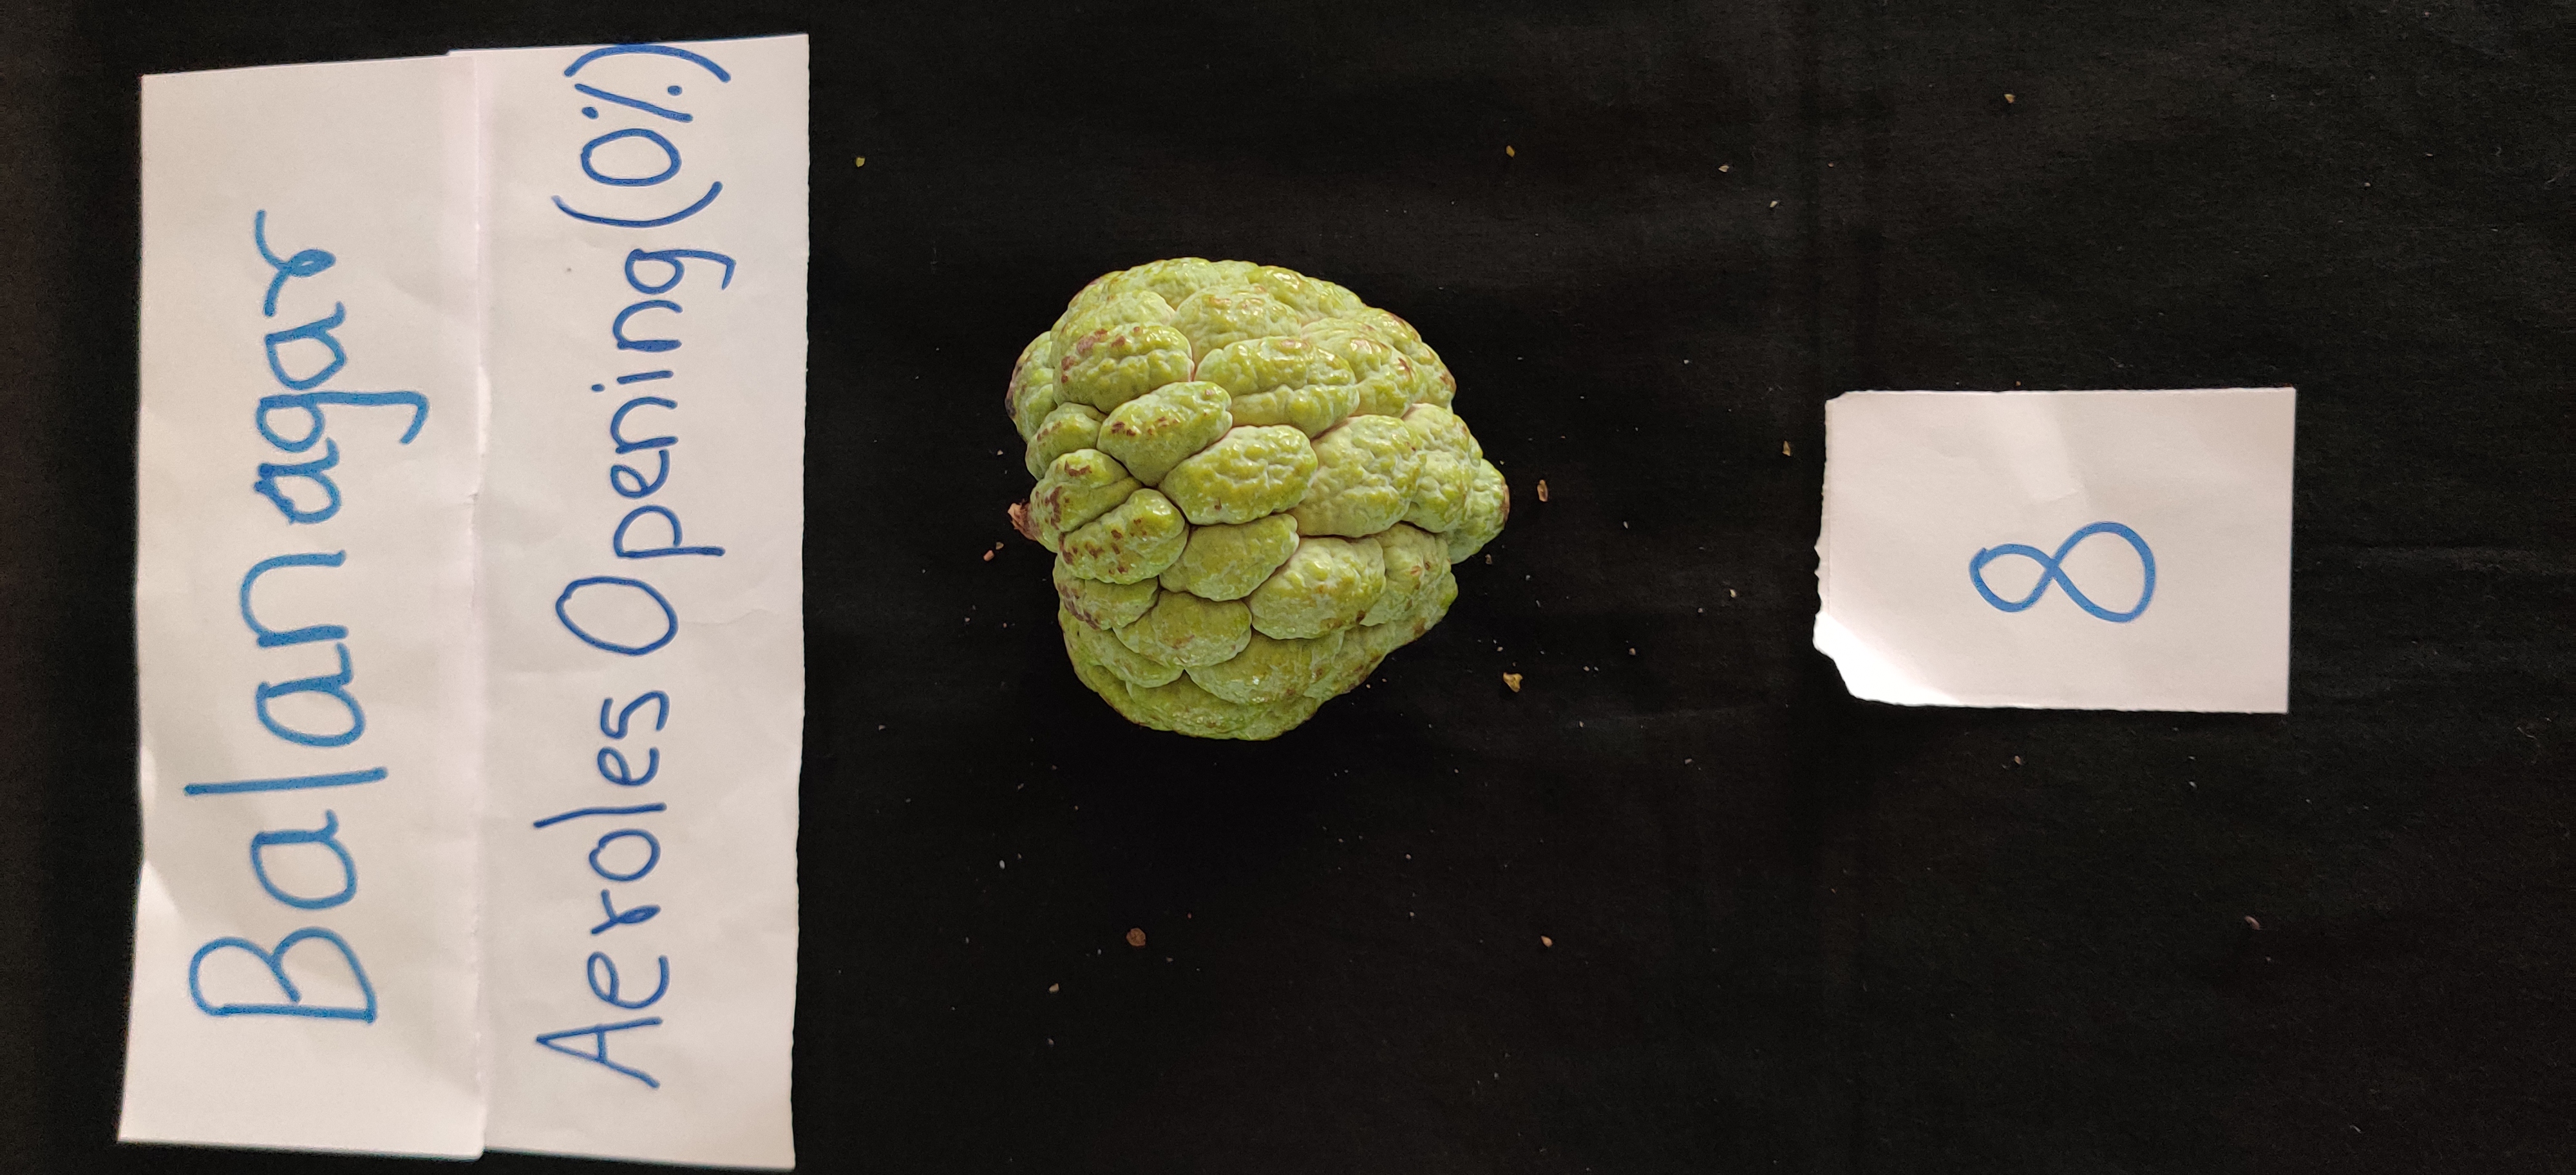 Balanagar
Aeroles Opening (0%)
8